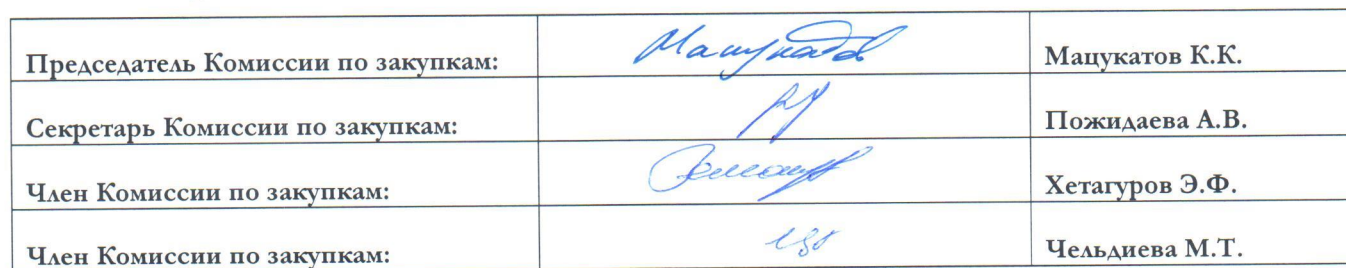 Председатель Комиссии по закупкам: Мацукатов Мацукатов К.К.
Секретарь Комиссии по закупкам: Пожидаева А.В.
Член Комиссии по закупкам: Хетагуров Э.Ф.
Член Комиссии по закупкам: Чельдиева М.Т.